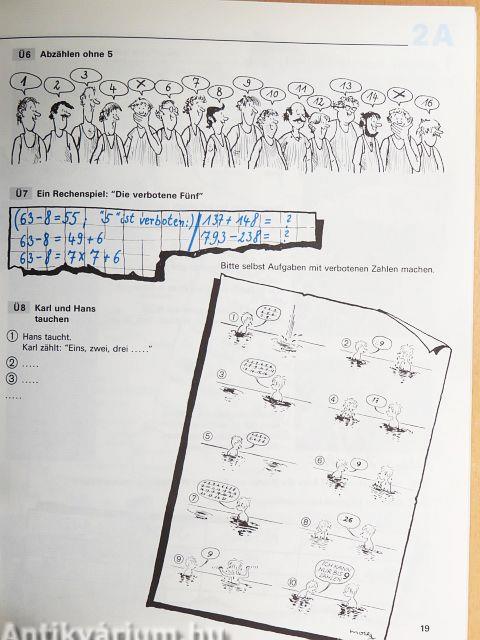 2A
Ü6 Abzählen ohne 5
1 2 3 4 X 6 7 8 9 10 11 12 13 14 X 16
Ü7 Ein Rechenspiel: "Die verbotene Fünf"
(63-8=55; "5" ist verboten:) 137+148= ?
63-8=49+6 793-238= ?
63-8=7x7+6
Bitte selbst Aufgaben mit verbotenen Zahlen machen.
Ü8 Karl und Hans
tauchen
① Hans taucht.
Karl zählt: "Eins, zwei, drei ....."
② .....
③ .....
.....
①
② 9
③
④ 17
⑤
⑥ 9
⑦
⑧ 26
⑨ 9
⑩ ICH KANN
NUR BIS 9
ZÄHLEN
19
Antikvárium.hu